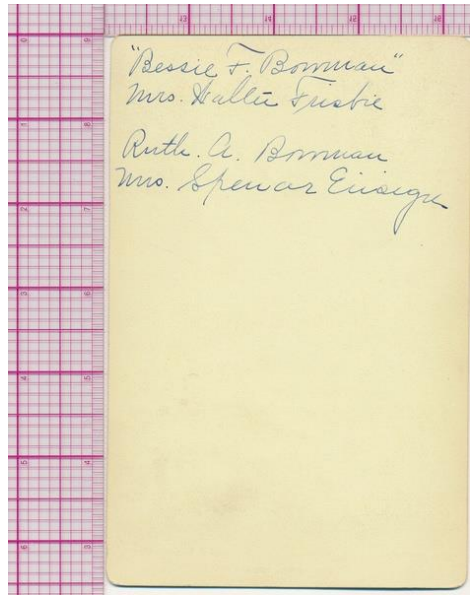 "Bessie F. Bowman"
Mrs. Hallie Frisbie
Ruth. A. Bowman
Mrs. Spencer Ensign